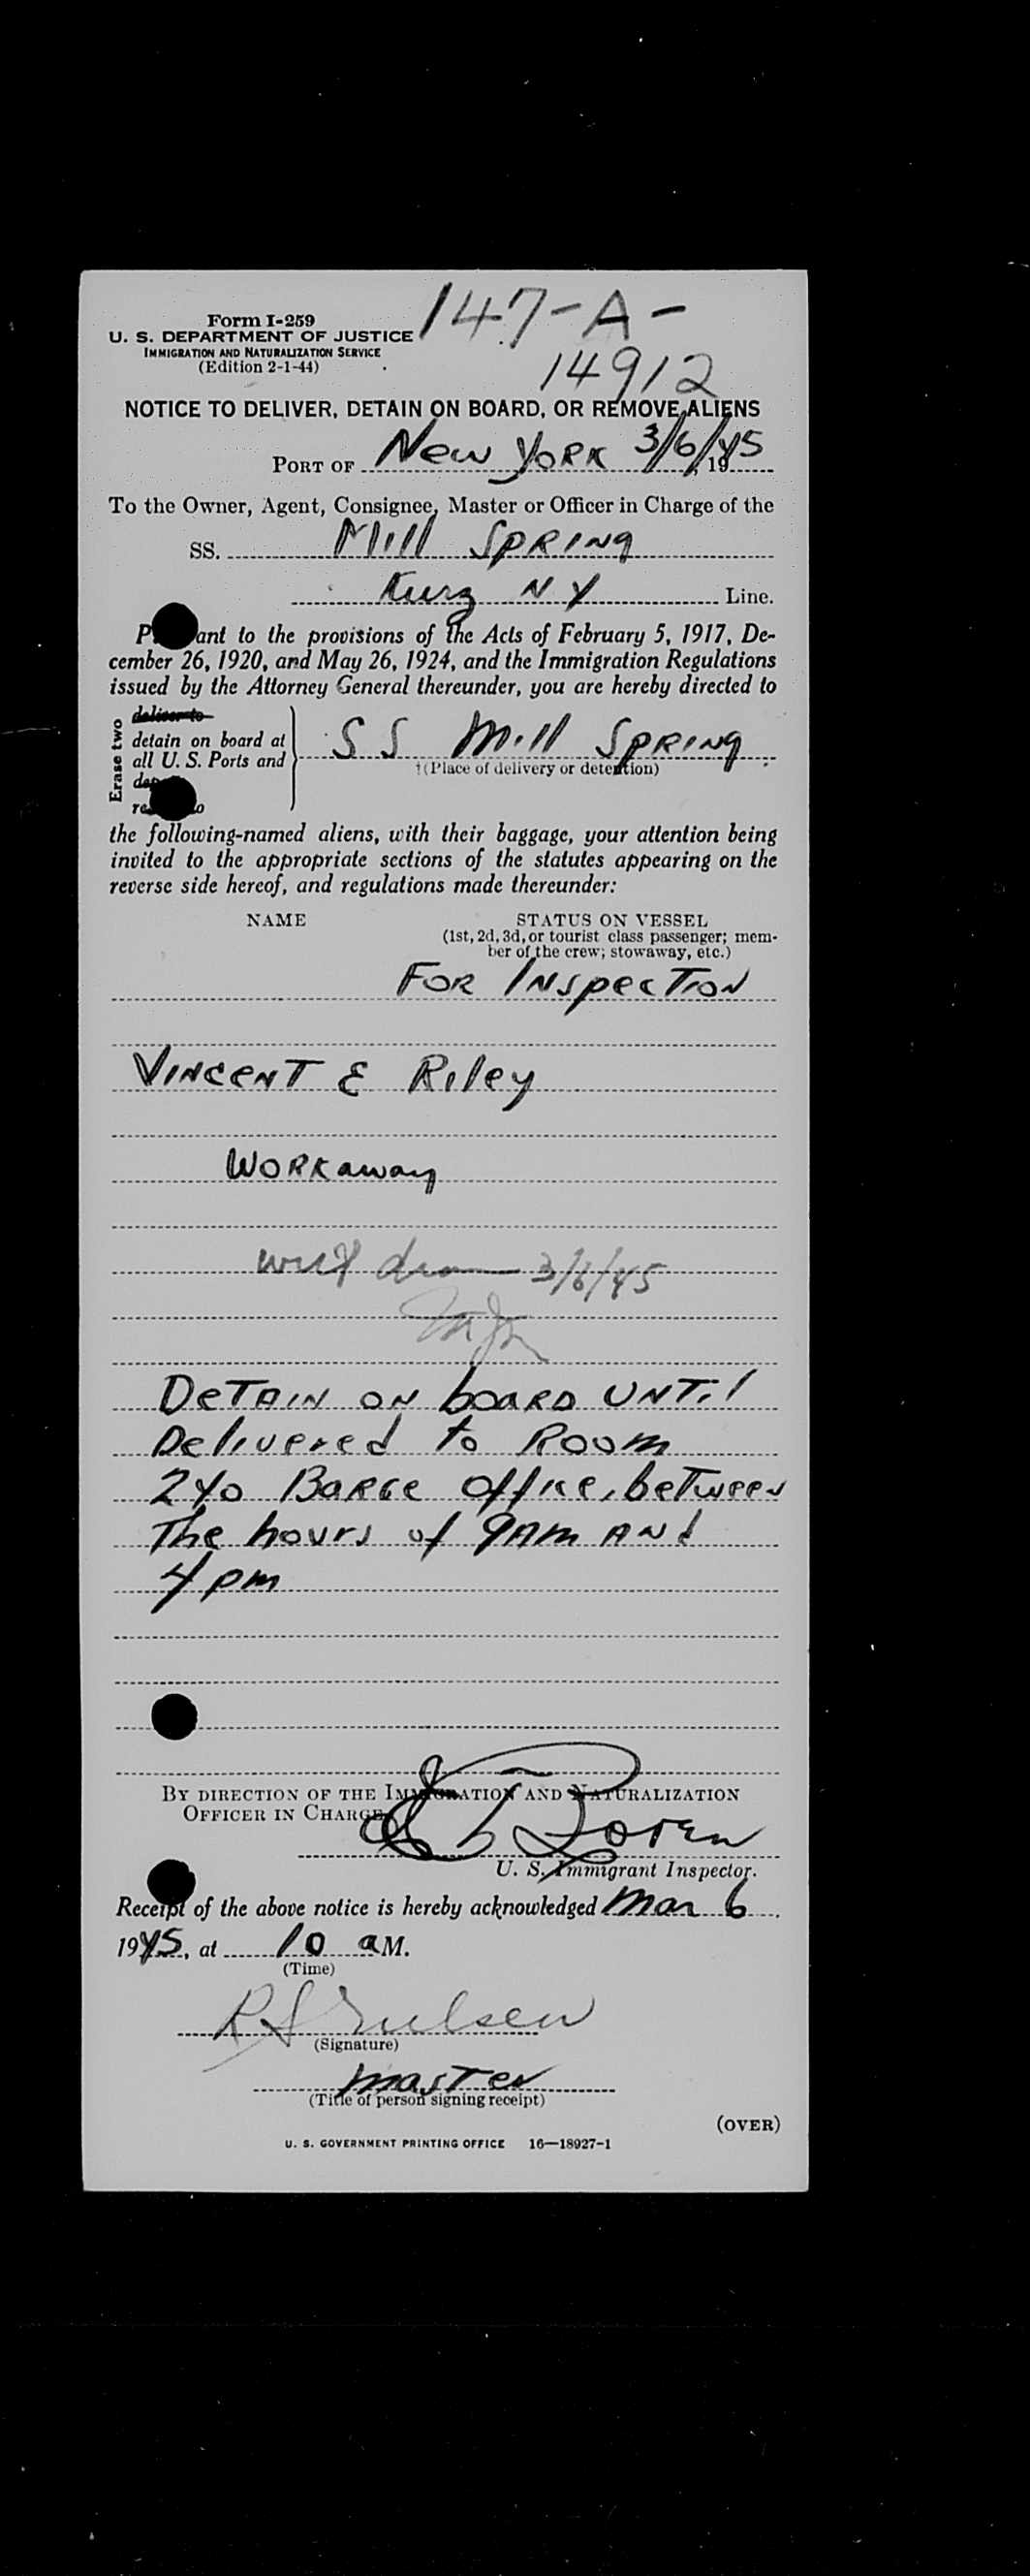 147-A-
14912
Form I-259
U. S. DEPARTMENT OF JUSTICE
IMMIGRATION AND NATURALIZATION SERVICE
(Edition 2-1-44)
NOTICE TO DELIVER, DETAIN ON BOARD, OR REMOVE ALIENS
PORT OF New York 3/6/, 1945
To the Owner, Agent, Consignee, Master or Officer in Charge of the
SS. Mill Spring
Kurz N Y Line.
P ant to the provisions of the Acts of February 5, 1917, De-
cember 26, 1920, and May 26, 1924, and the Immigration Regulations
issued by the Attorney General thereunder, you are hereby directed to
Erase two
deliver to
detain on board at
all U. S. Ports and
SS Mill Spring
†(Place of delivery or detention)
the following-named aliens, with their baggage, your attention being
invited to the appropriate sections of the statutes appearing on the
reverse side hereof, and regulations made thereunder:
NAME STATUS ON VESSEL
(1st, 2d, 3d, or tourist class passenger; mem-
ber of the crew; stowaway, etc.)
For Inspection
Vincent E Riley
Workaway
3/6/45
Detain on board until
Delivered to Room
240 Barge Office, between
The hours of 9AM and
4 pm
BY DIRECTION OF THE IMMIGRATION AND NATURALIZATION
OFFICER IN CHARGE
U. S. Immigrant Inspector.
Receipt of the above notice is hereby acknowledged Mar 6
1945, at 10 aM.
(Time)
(Signature)
master
(Title of person signing receipt)
(OVER)
U. S. GOVERNMENT PRINTING OFFICE 16—18927-1